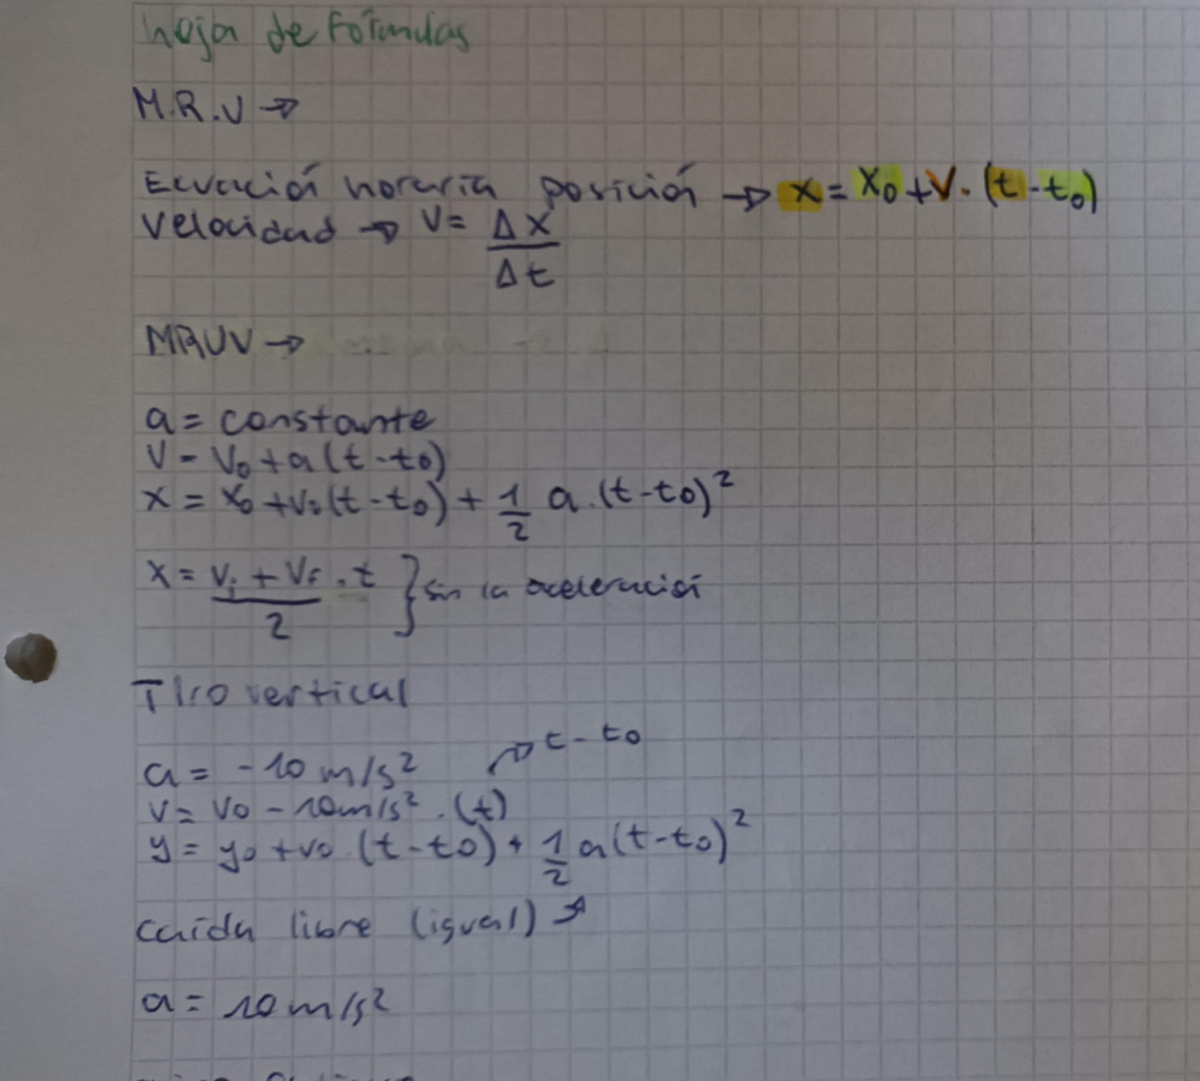 hoja de Fórmulas
M.R.U →
Ecuación horaria posición → x = x₀ + v. (t - t₀)
Velocidad → v = Δx / Δt
MRUV →
a = constante
v = v₀ + a (t - t₀)
x = x₀ + v₀ (t - t₀) + 1/2 a . (t - t₀)²
x = (vᵢ + v_F)/2 . t } sin la aceleración
Tiro vertical
t - t₀
a = -10 m/s²
v = v₀ - 10 m/s² . (t)
y = y₀ + v₀ (t - t₀) + 1/2 a (t - t₀)²
caída libre (igual)
a = 10 m/s²